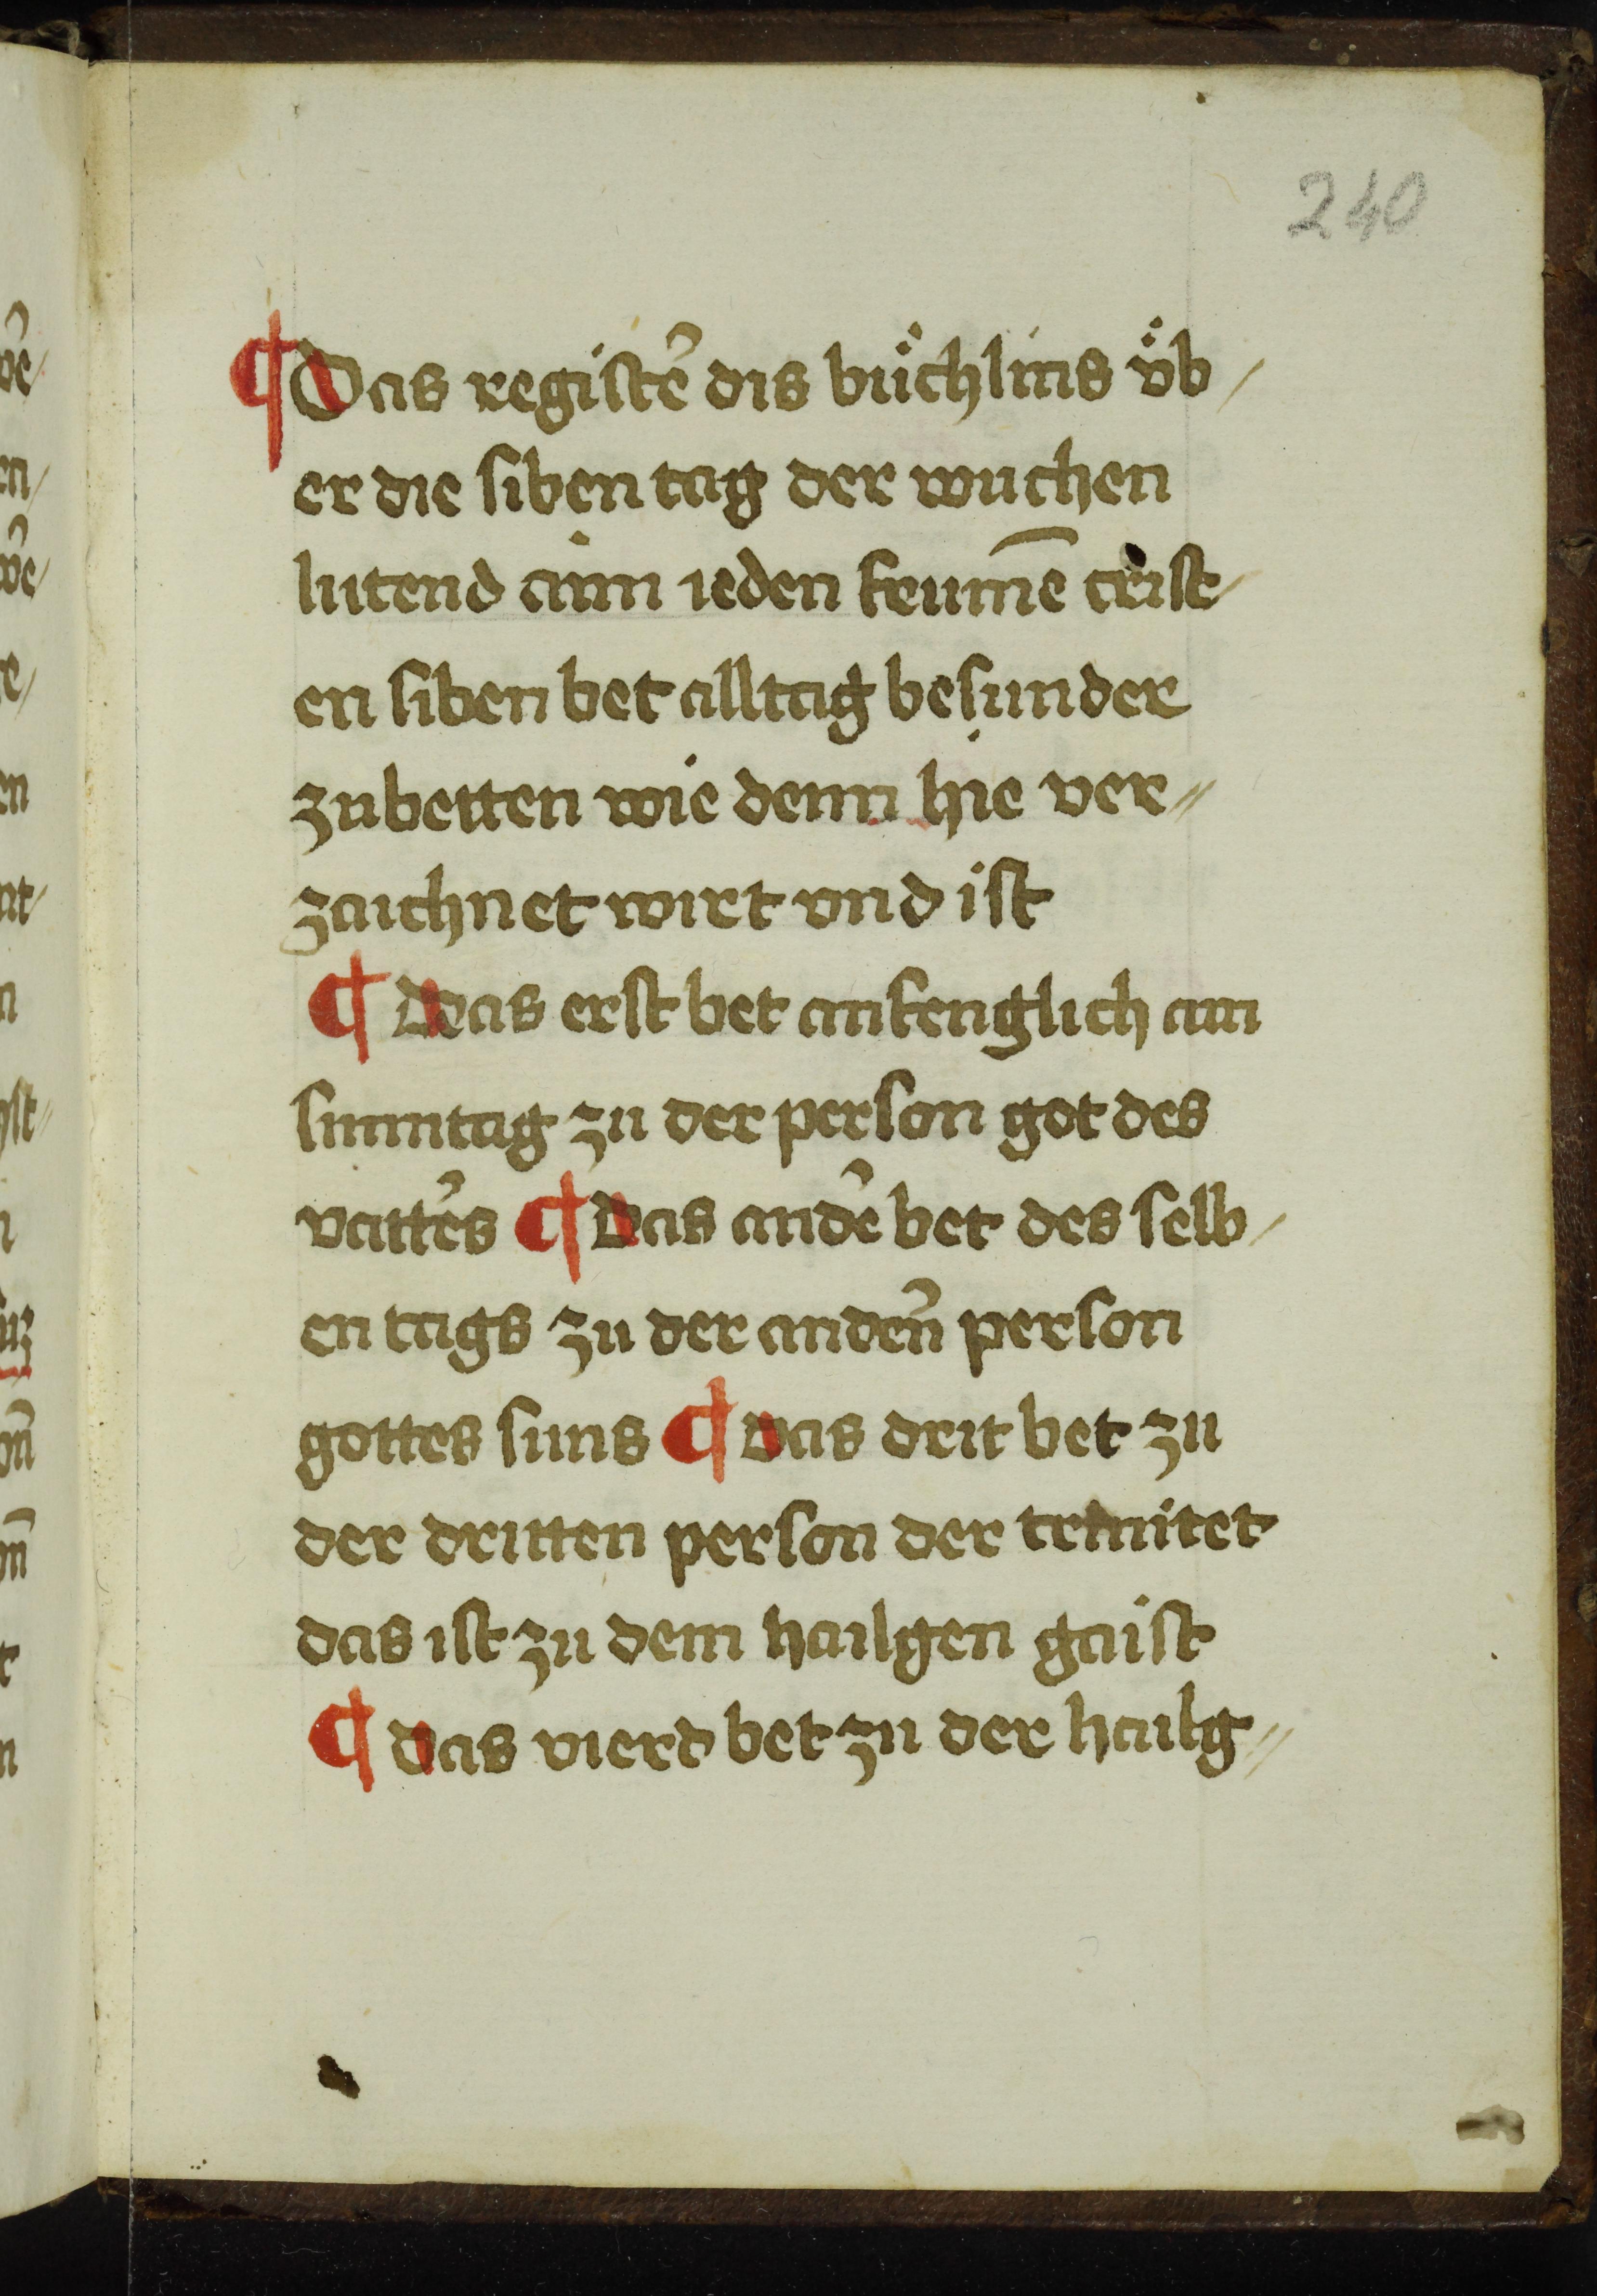 240
¶ Das registeꝛ̄ dis bu̇̈chlins vͤb/
er die siben tag der wuchen
lutend aim ieden frumē crist/
en siben bet alltag besunder
zubetten wie denn hie ver//
zaichnet wirt vnd ist
¶ Das erst bet anfenglich am
sunntag zu der person got des
vatte᷑s ¶ Das ande᷑ bet des selb/
en tags zu der ande᷑n person
gottes suns ¶ Das drit bet zu
der dritten person der trinitet
das ist zu dem hailgen gaist
¶ das vierd bet zu der hailg//